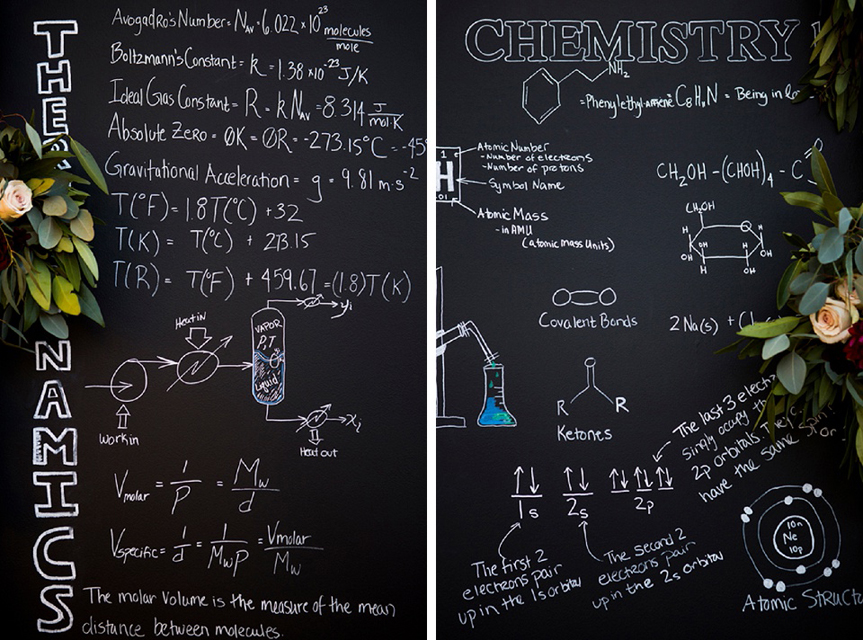 THE
NAMICS
Avogadro's Number = N_AV = 6.022 × 10²³ molecules/mole
Boltzmann's Constant = k = 1.38 × 10⁻²³ J/K
Ideal Gas Constant = R = k N_AV = 8.314 J/mol·K
Absolute Zero = 0K = 0R = -273.15°C = -45
Gravitational Acceleration = g = 9.81 m·s⁻²
T(°F) = 1.8T(°C) + 32
T(K) = T(°C) + 273.15
T(R) = T(°F) + 459.67 = (1.8)T(K)
Heat in
VAPOR
P,T
Liquid
yᵢ
xᵢ
Work in
Heat out
V_molar = 1/ρ = M_w/d
V_specific = 1/d = 1/(M_w ρ) = V_molar/M_w
The molar volume is the measure of the mean
distance between molecules.
CHEMISTRY
NH₂
=Phenylethyl-amene C₈H₁₁N = Being in lo
1
H
.01
Atomic Number
-Number of electrons
-Number of protons
Symbol Name
Atomic Mass
-in AMU
(atomic mass units)
CH₂OH-(CHOH)₄-C
CH₂OH
H O H
H
OH OH
H OH
Covalent Bonds
2Na(s) + Cl
R R
Ketones
The last 3 elect
simply occupy th
2p orbitals. The
have the same
↑↓ ↑↓ ↑↓ ↑↓ ↑↓
1s 2s 2p
The first 2
electrons pair
up in the 1s orbital
The second 2
electrons pair
up in the 2s orbital
10n
Ne
10p
Atomic Structu